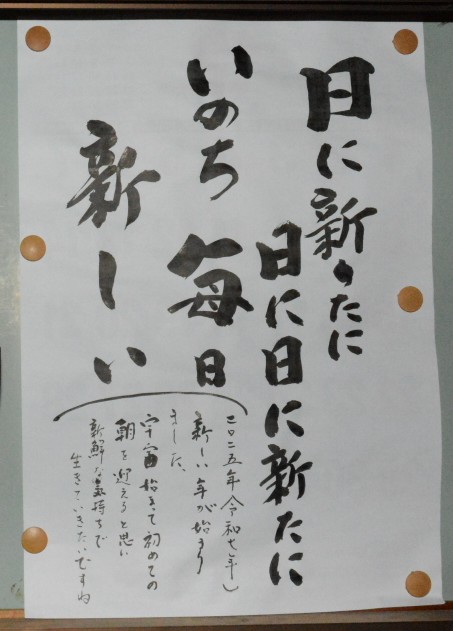 日に新らたに
日に日に新たに
いのち毎日
新しい
二〇二五年(令和七年)
新しい年が始まり
ました、
宇宙始まって初めての
朝を迎えると思い
新鮮な気持ちで
生きていきたいですね